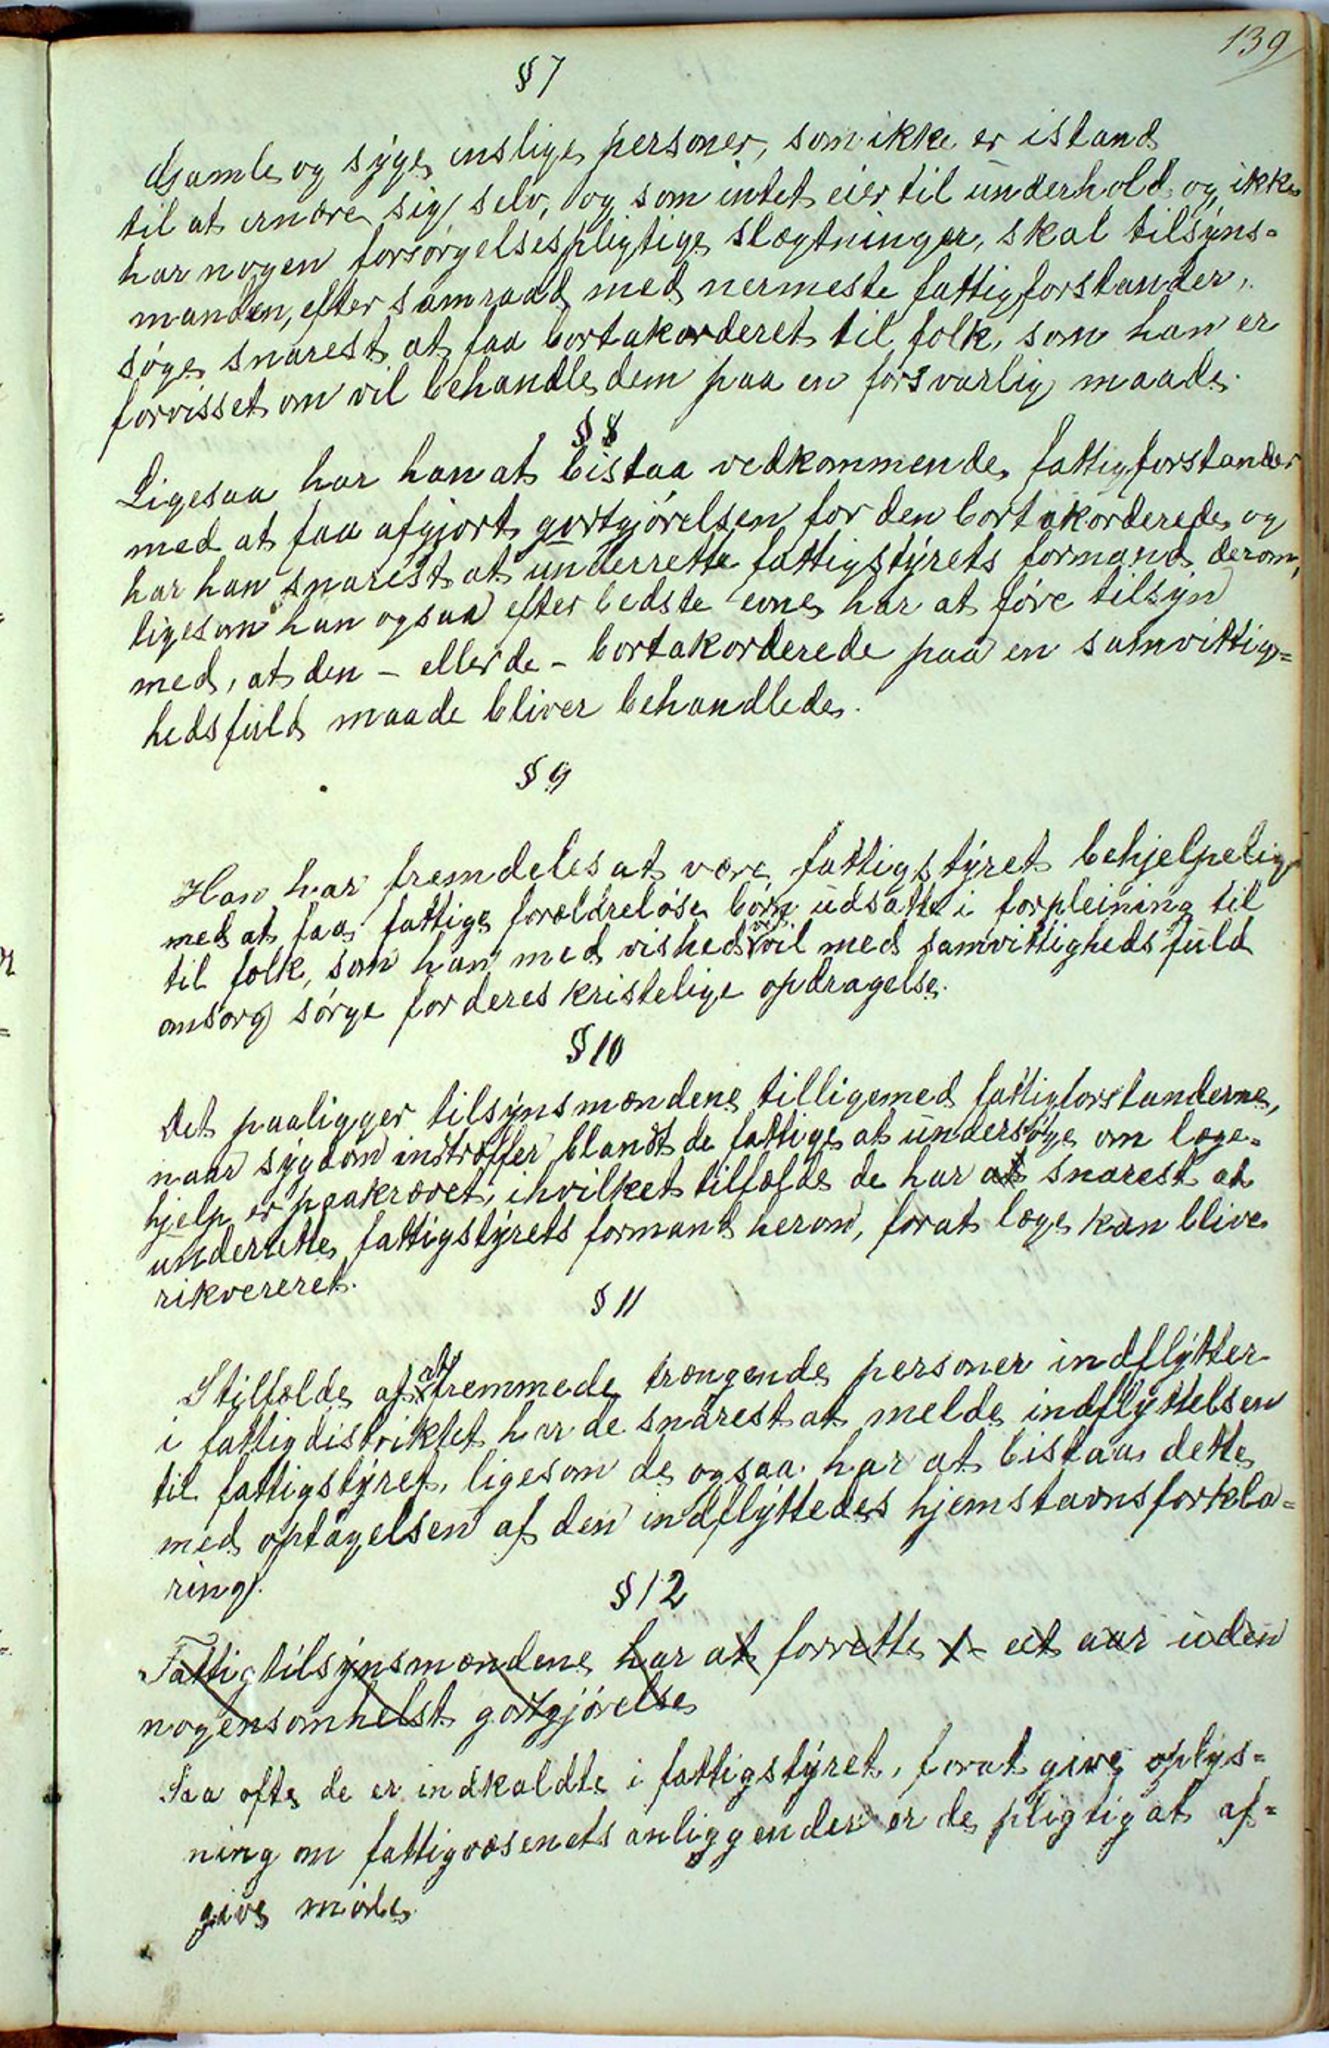 139
§ 7
Gamle og syge enslige personer, som ikke er istand
til at ernære sig selv, og som intet eier til underhold og ikke
har nogen forsørgelsespligtige slægtninger, skal tilsyns-
manden, efter samraad med nermeste fattigforstander,
søge snarest at faa bortakorderet til folk, som han er
forvisset om vil behandle dem paa en forsvarlig maade.
§ 8
Ligesaa har han at bistaa vedkommende fattigforstander
med at faa afgjort gortgjørelsen for den bortakorderede og
har han snarest at underrette fattigstyrets formand derom,
ligesom han ogsaa efter bedste evne har at føre tilsyn
med, at den – eller de – bortakorderede paa en samvittig=
hedsfuld maade bliver behandlede.
§ 9
Han har fremdeles at være fattigstyret behjelpelig
med at faa fattige forældreløse børn udsatte i forpleining til
til folk, som han med vished ved vil med samvittighedsfuld
omsorg sørge for deres kristelige opdragelse.
§ 10
Det paaligger tilsynsmændene tilligemed fattigforstanderne,
naar sygdom indtræffer blandt de fattige at undersøge om læge-
hjelp er paakrævet, i hvilket tilfælde de har at snarest at
underrette fattigstyrets formand herom, forat læge kan blive
rikvereret.
§ 11
I tilfælde af at fremmede trængende personer indflytter
i fattigdistriktet har de snarest at melde indflyttelsen
til fattigstyret, ligesom de ogsaa har at bistaa dette
med optagelsen af den indflyttedes hjemstavnsforkla=
ring.
§ 12
Fattigtilsynsmændene har at forrette 1- et aar uden
nogensomhelst gortgjørelse
Saa ofte de er indkaldte i fattigstyret, forat give oplys=
ning om fattigvæsenets anliggender er de pligtig at af=
give møde